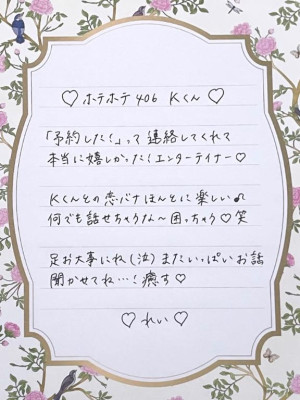 ♡ ホテホテ 406 Kくん ♡
「予約した！」って連絡してくれて
本当に嬉しかった！エンターテイナー♡
Kくんとの恋バナほんとに楽しい♪
何でも話せちゃうな〜困っちゃう♡笑
足お大事にね(泣)またいっぱいお話
聞かせてね…！癒す♡
♡ れい ♡